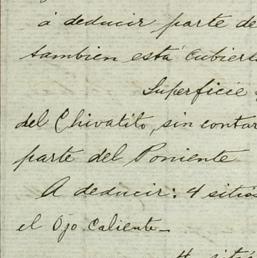 á deducir parte de
tambien está cubiert
Superficie
del Chivatito, sin contar
parte del Poniente
A deducir: 4 sitio
el Ojo Caliente-
4 sitio